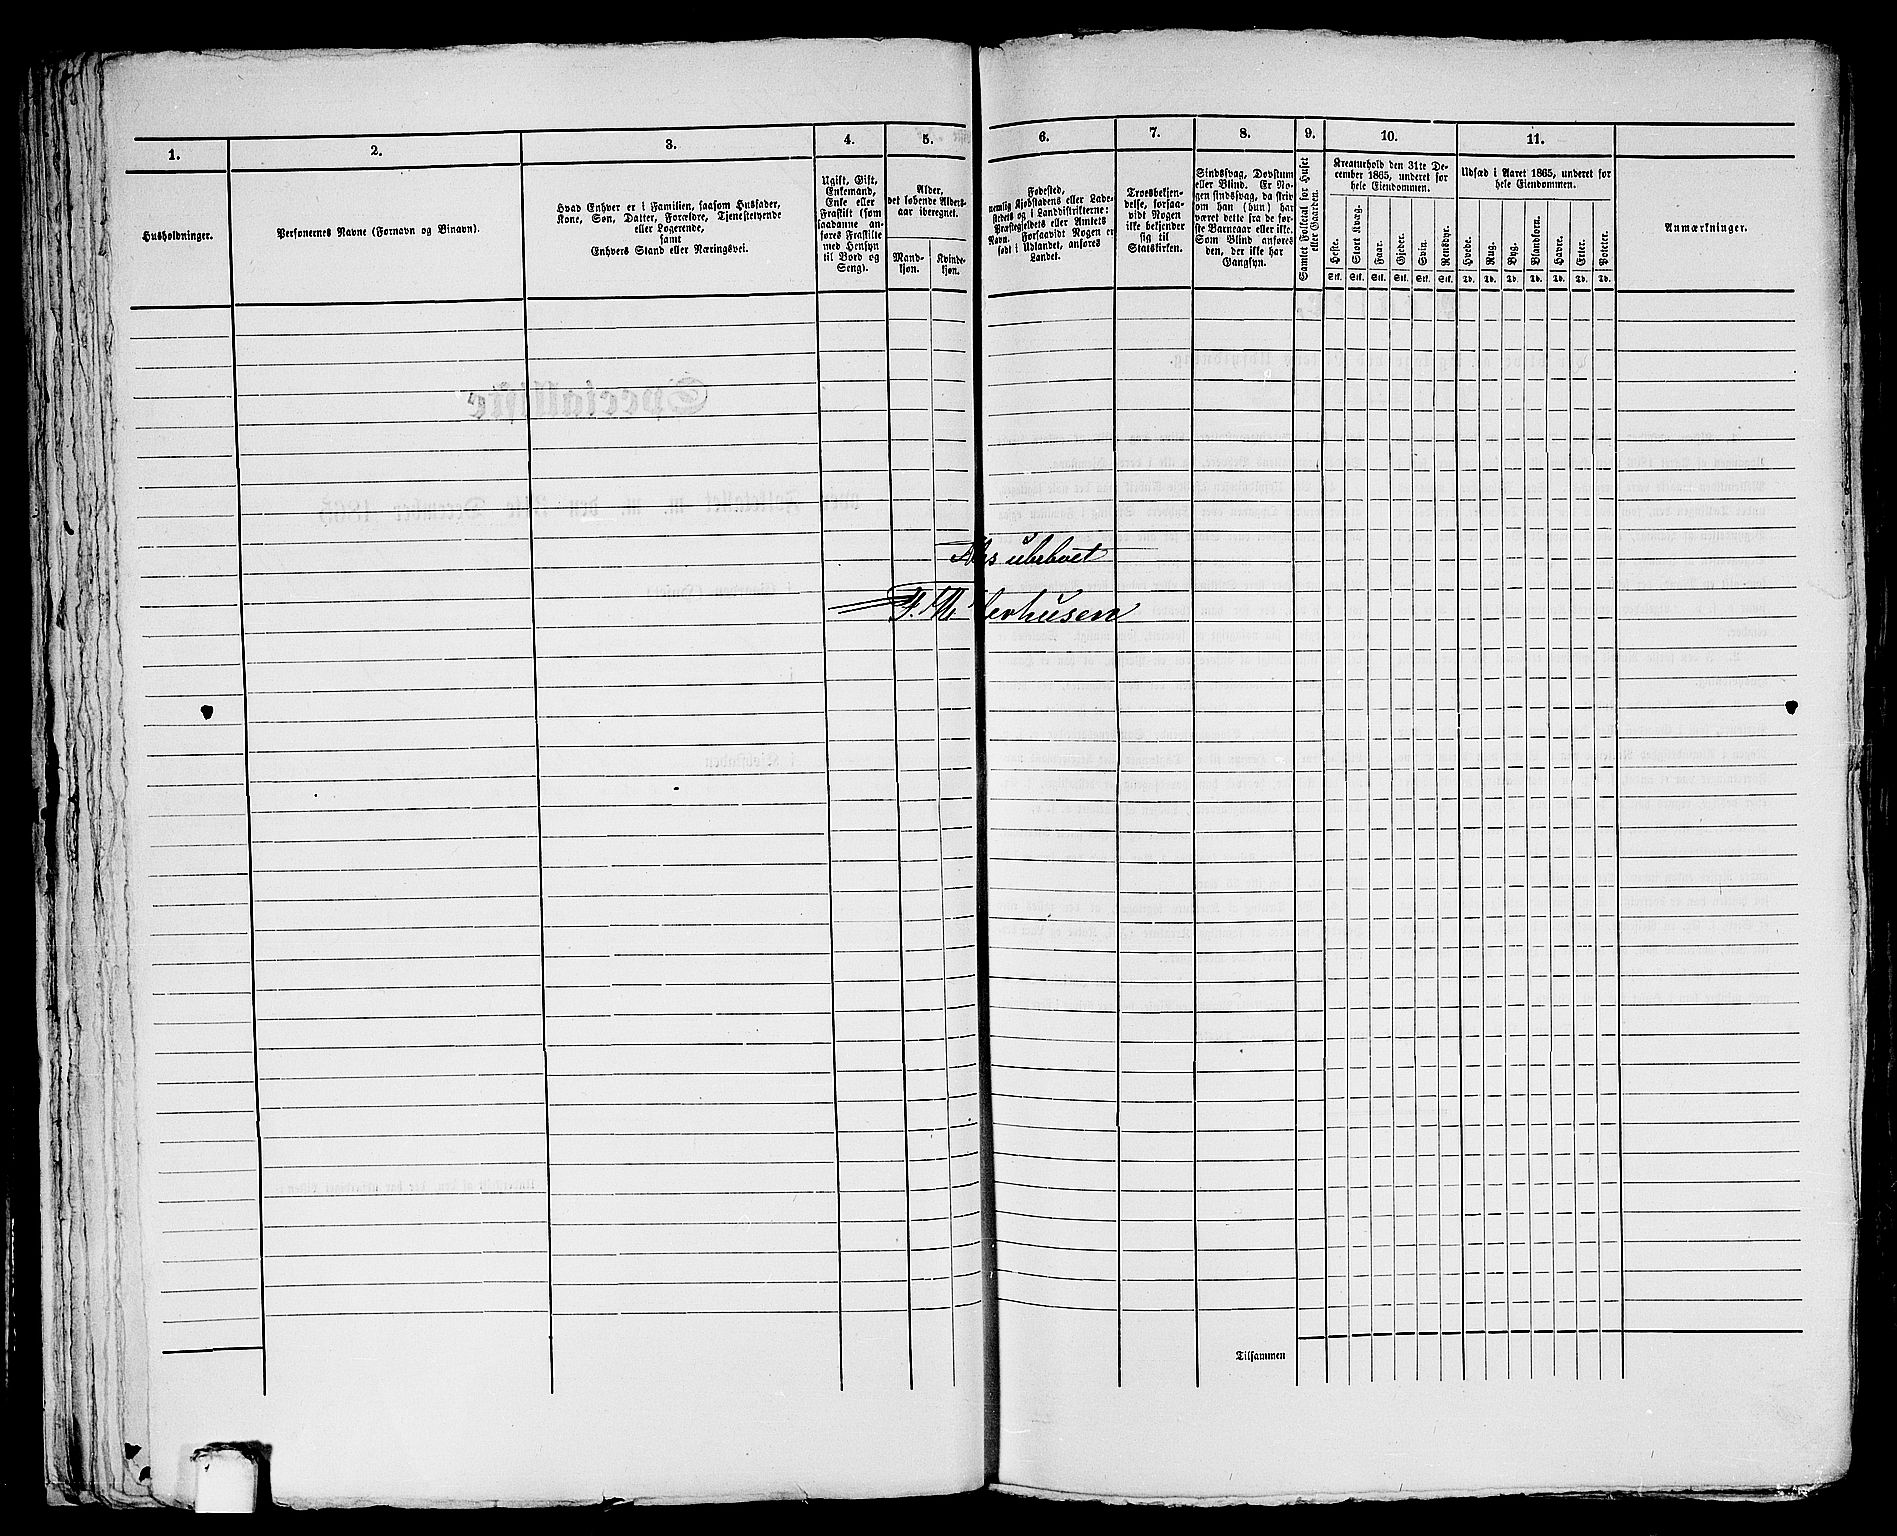 1.
Husholdninger.
2.
Personernes Navne (Fornavn og Binavn).
3.
Hvad Enhver er i Familien, saasom Husfader,
Kone, Søn, Datter, Forældre, Tjenestetyende
eller Logerende,
samt
Enhvers Stand eller Næringsvei.
4.
Ugift, Gift,
Enkemand,
Enke eller
Fraskilt (som
saadanne an-
føres Fraskilte
med Hensyn
til Bord og
Seng).
5.
Alder,
det løbende Alders-
aar iberegnet.
Mand-
kjøn.
Kvinde-
kjøn.
6.
Fødested,
nemlig Kjøbstadens eller Lade-
stedets og i Landdistrikterne:
Præstegjeldets eller Amtets
Navn. Forsaavidt Nogen er
født i Udlandet, anføres
Landet.
7.
Troesbekjen-
delse, forsaa-
vidt Nogen
ikke bekjender
sig til
Statskirken.
8.
Sindssvag, Døvstum
eller Blind. Er No-
gen sindssvag, da skriv
om han (hun) har
været dette fra de før-
ste Barneaar eller ikke.
Som Blind anføres
den, der ikke har
Gangsyn.
9.
Samlet Folketal for Huset
eller Gaarden.
10.
Kreaturhold den 31te De-
cember 1865, underet for
hele Eiendommen.
Heste.
Stort Kvæg.
Faar.
Gjeder.
Svin.
Rensdyr.
Stk. Stk. Stk. Stk. Stk. Stk.
11.
Udsæd i Aaret 1865, underet for
hele Eiendommen.
Hvede.
Rug.
Byg.
Blandkorn.
Havre.
Erter.
Poteter.
Td. Td. Td. Td. Td. Td. Td.
Anmærkninger.
ubeboet
Tilsammen